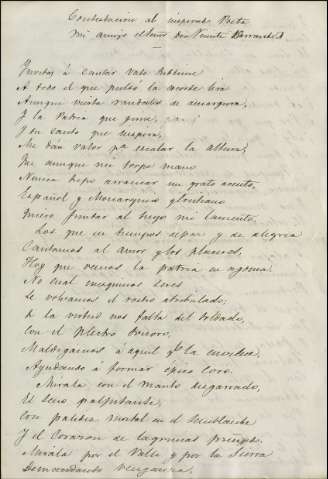 Contestacion al inspirado Poeta
Mi amigo el Señor Don Vicente Barrantes
Invitas á cantar vate sublime
A todo el que pulsó la acorde lira
Aunque vierta raudales de amargura,
Y la Patria que gime,
Y tu canto que inspira,
Me dan valor pª escalar la altura;
Que aunque mi torpe mano
Nunca supo arrancar un grato acento,
Español y Monarquico
Quiero juntar al tuyo mi lamento.
Los que en tiempos de paz y de alegria
Cantamos al amor y los placeres,
Hoy que vemos la patria en agonia
No cual mugeres
Le volvamos el rostro atribulado;
Si la virtud nos falta del soldado,
Con el Plectro sonoro,
Maldigamos á aquel qe la envilece,
Ayudando á formar épico coro.
Mirala con el manto desgarrado,
El seno palpitante,
Con palidez mortal en el semblante
Y el Corazon de lagrimas
Mirala por el Valle y por la Sierra
Demandando venganza,